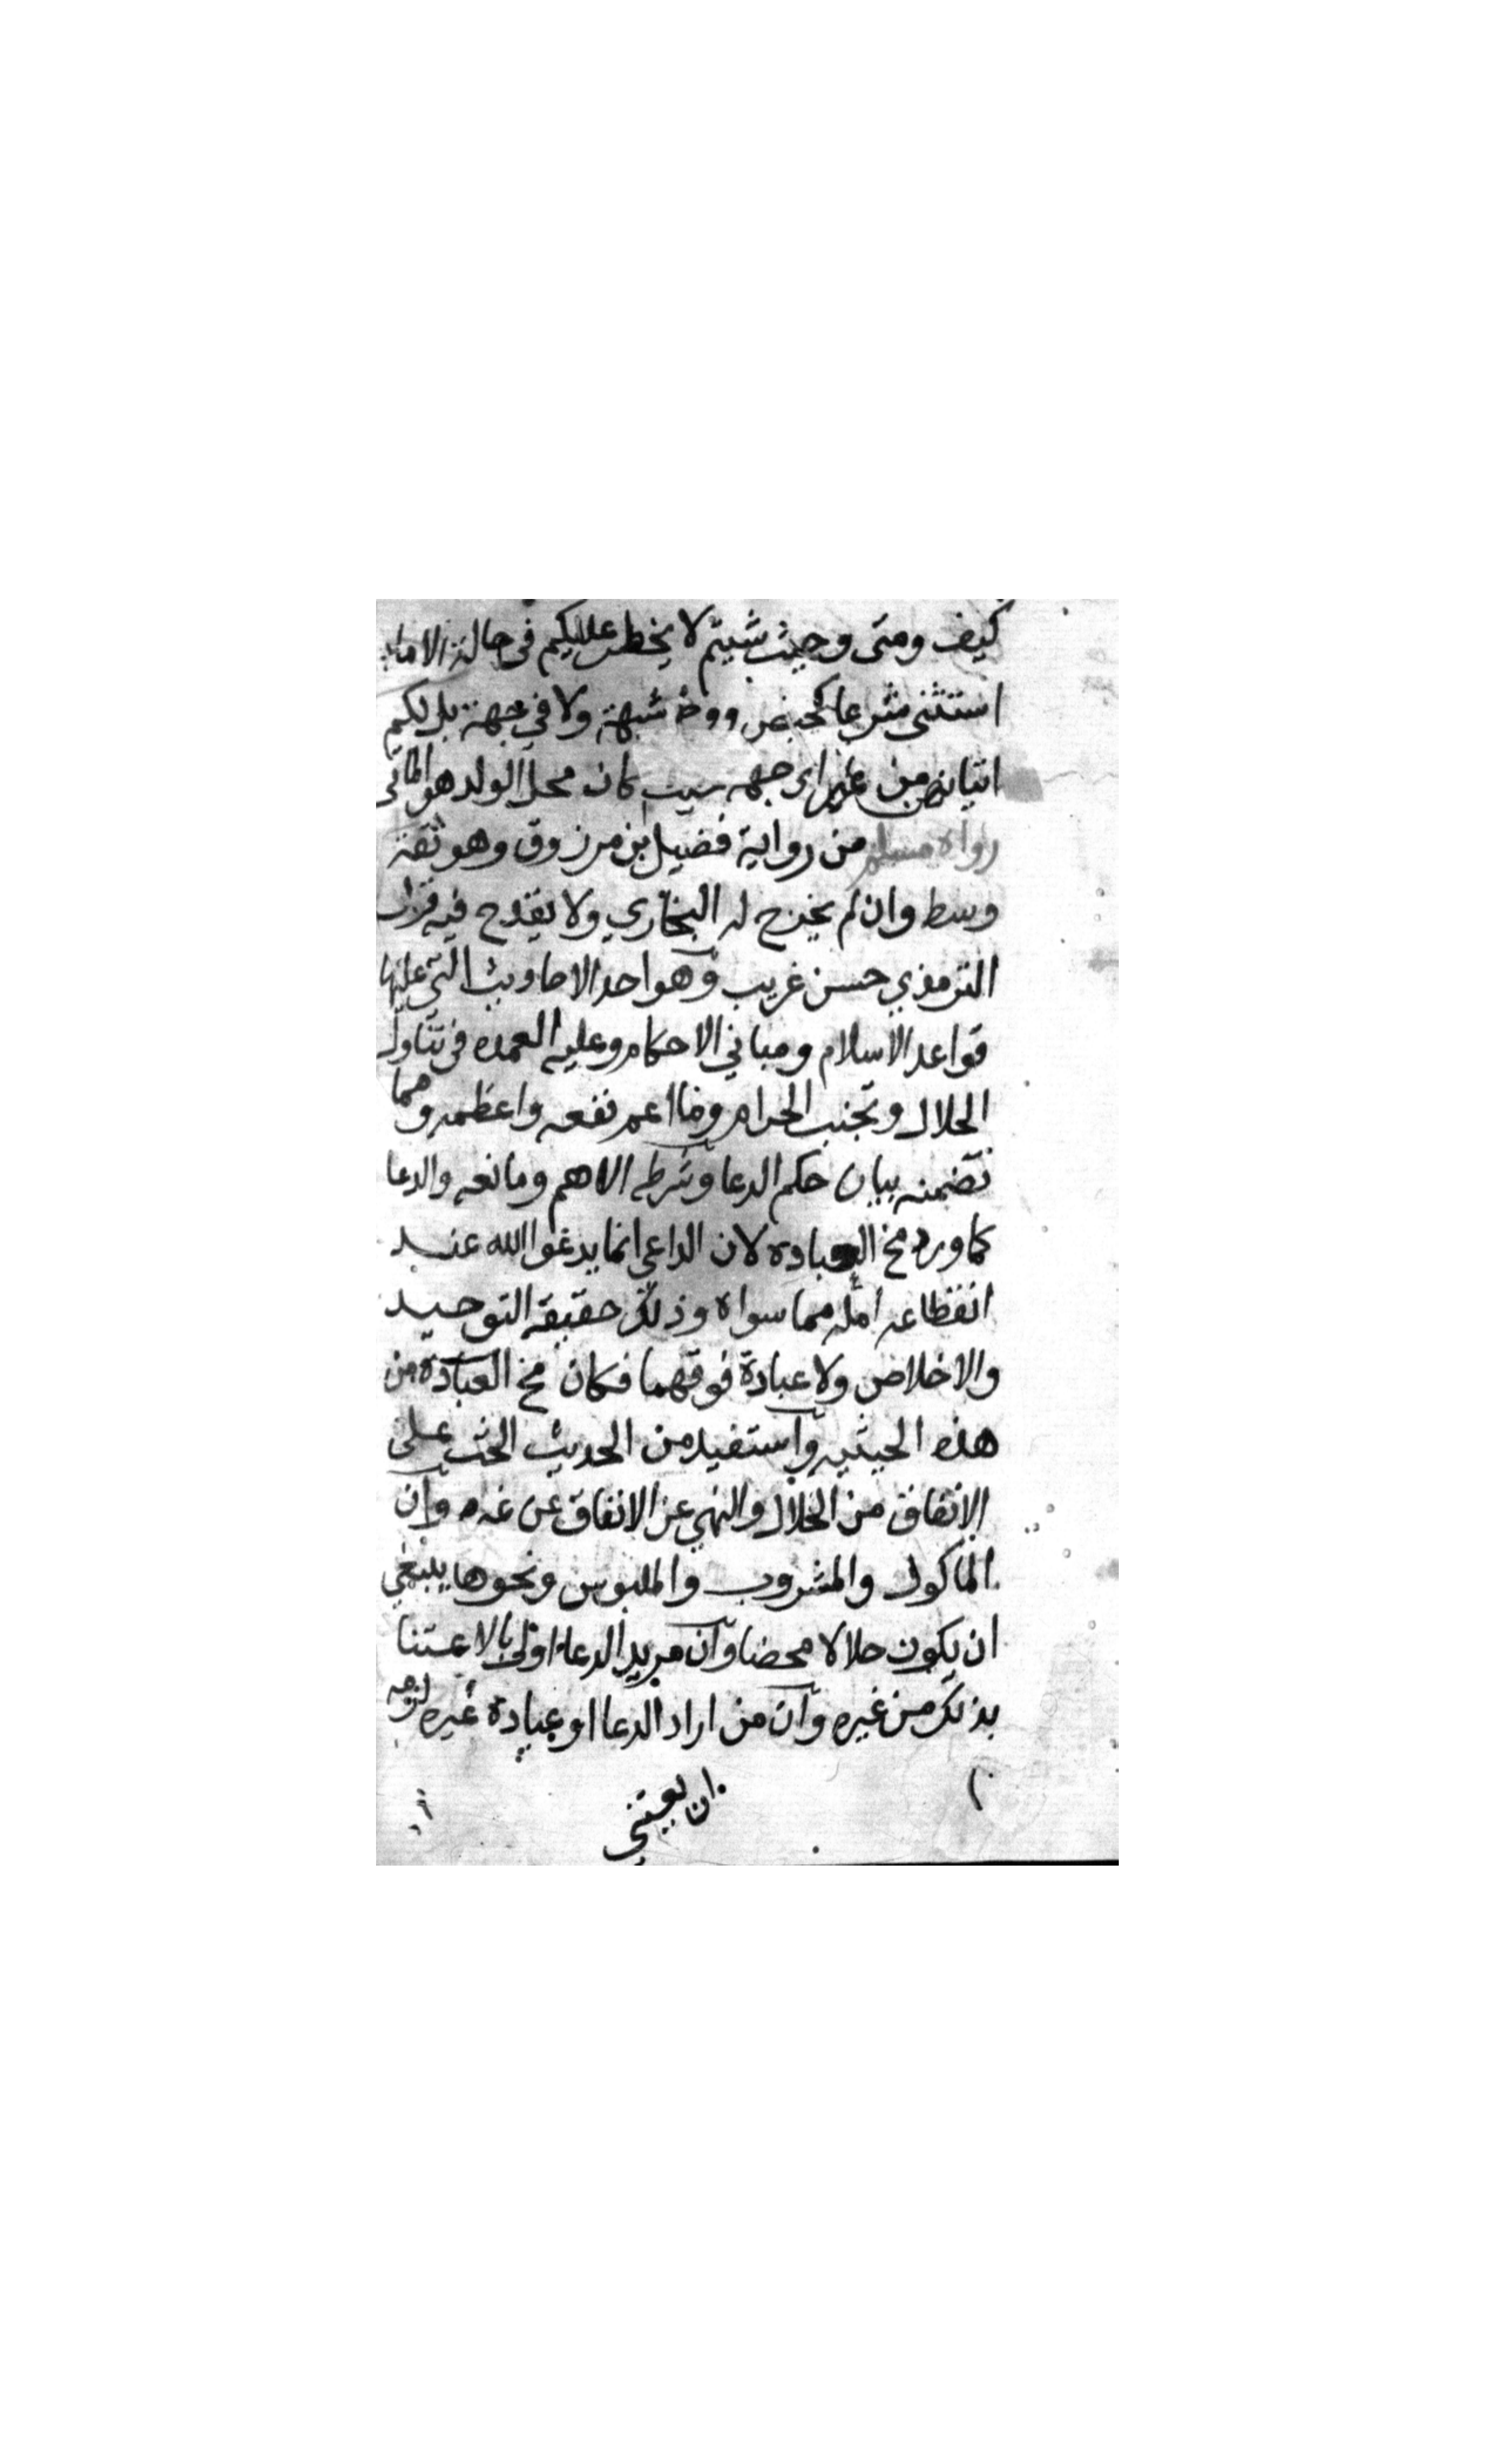 كيف ومتى وحيث شيتم لا يخطر عليكم في حالة الا ما
استثنى شرعا كحيض ووط شبهة ولا في جهة بل لكم
اتيانهن من اي جهه حيث كان محل الولد هو الماتي
رواه مسلم من رواية فضيل بن مرزوق وهو ثقة
وسط وان لم يخرج له البخاري ولا يقدح فيه قول
الترمذي حسن غريب وهو احد الاحاديث التي عليها
قواعد الاسلام ومباني الاحكام وعليه العمده في تناول
الحلال وتجنب الحرام وما اعم نفعه واعظمه ومما
تضمنه بيان حكم الدعا وشرطه الاهم ومانعه والدعا
كما ورد مخ العبادة لان الداعي انما يدعوا الله عند
انقطاعه امله مما سواه وذلك حقيقة التوحيد
والاخلاص ولا عبادة فوقهما فكان مخ العبادة من
هذه الحيثيه واستفيد من الحديث الحث على
الانفاق من الحلال والنهي عن الانفاق عن غيره وان
الماكول والمشروب والملبوس ونحوها ينبغي
ان يكون حلالا محضا وان مريد الدعا اولى بالاعتنا
بذلك من غيره وان من اراد الدعا او عبادة غيره لزمه
ان يعتني